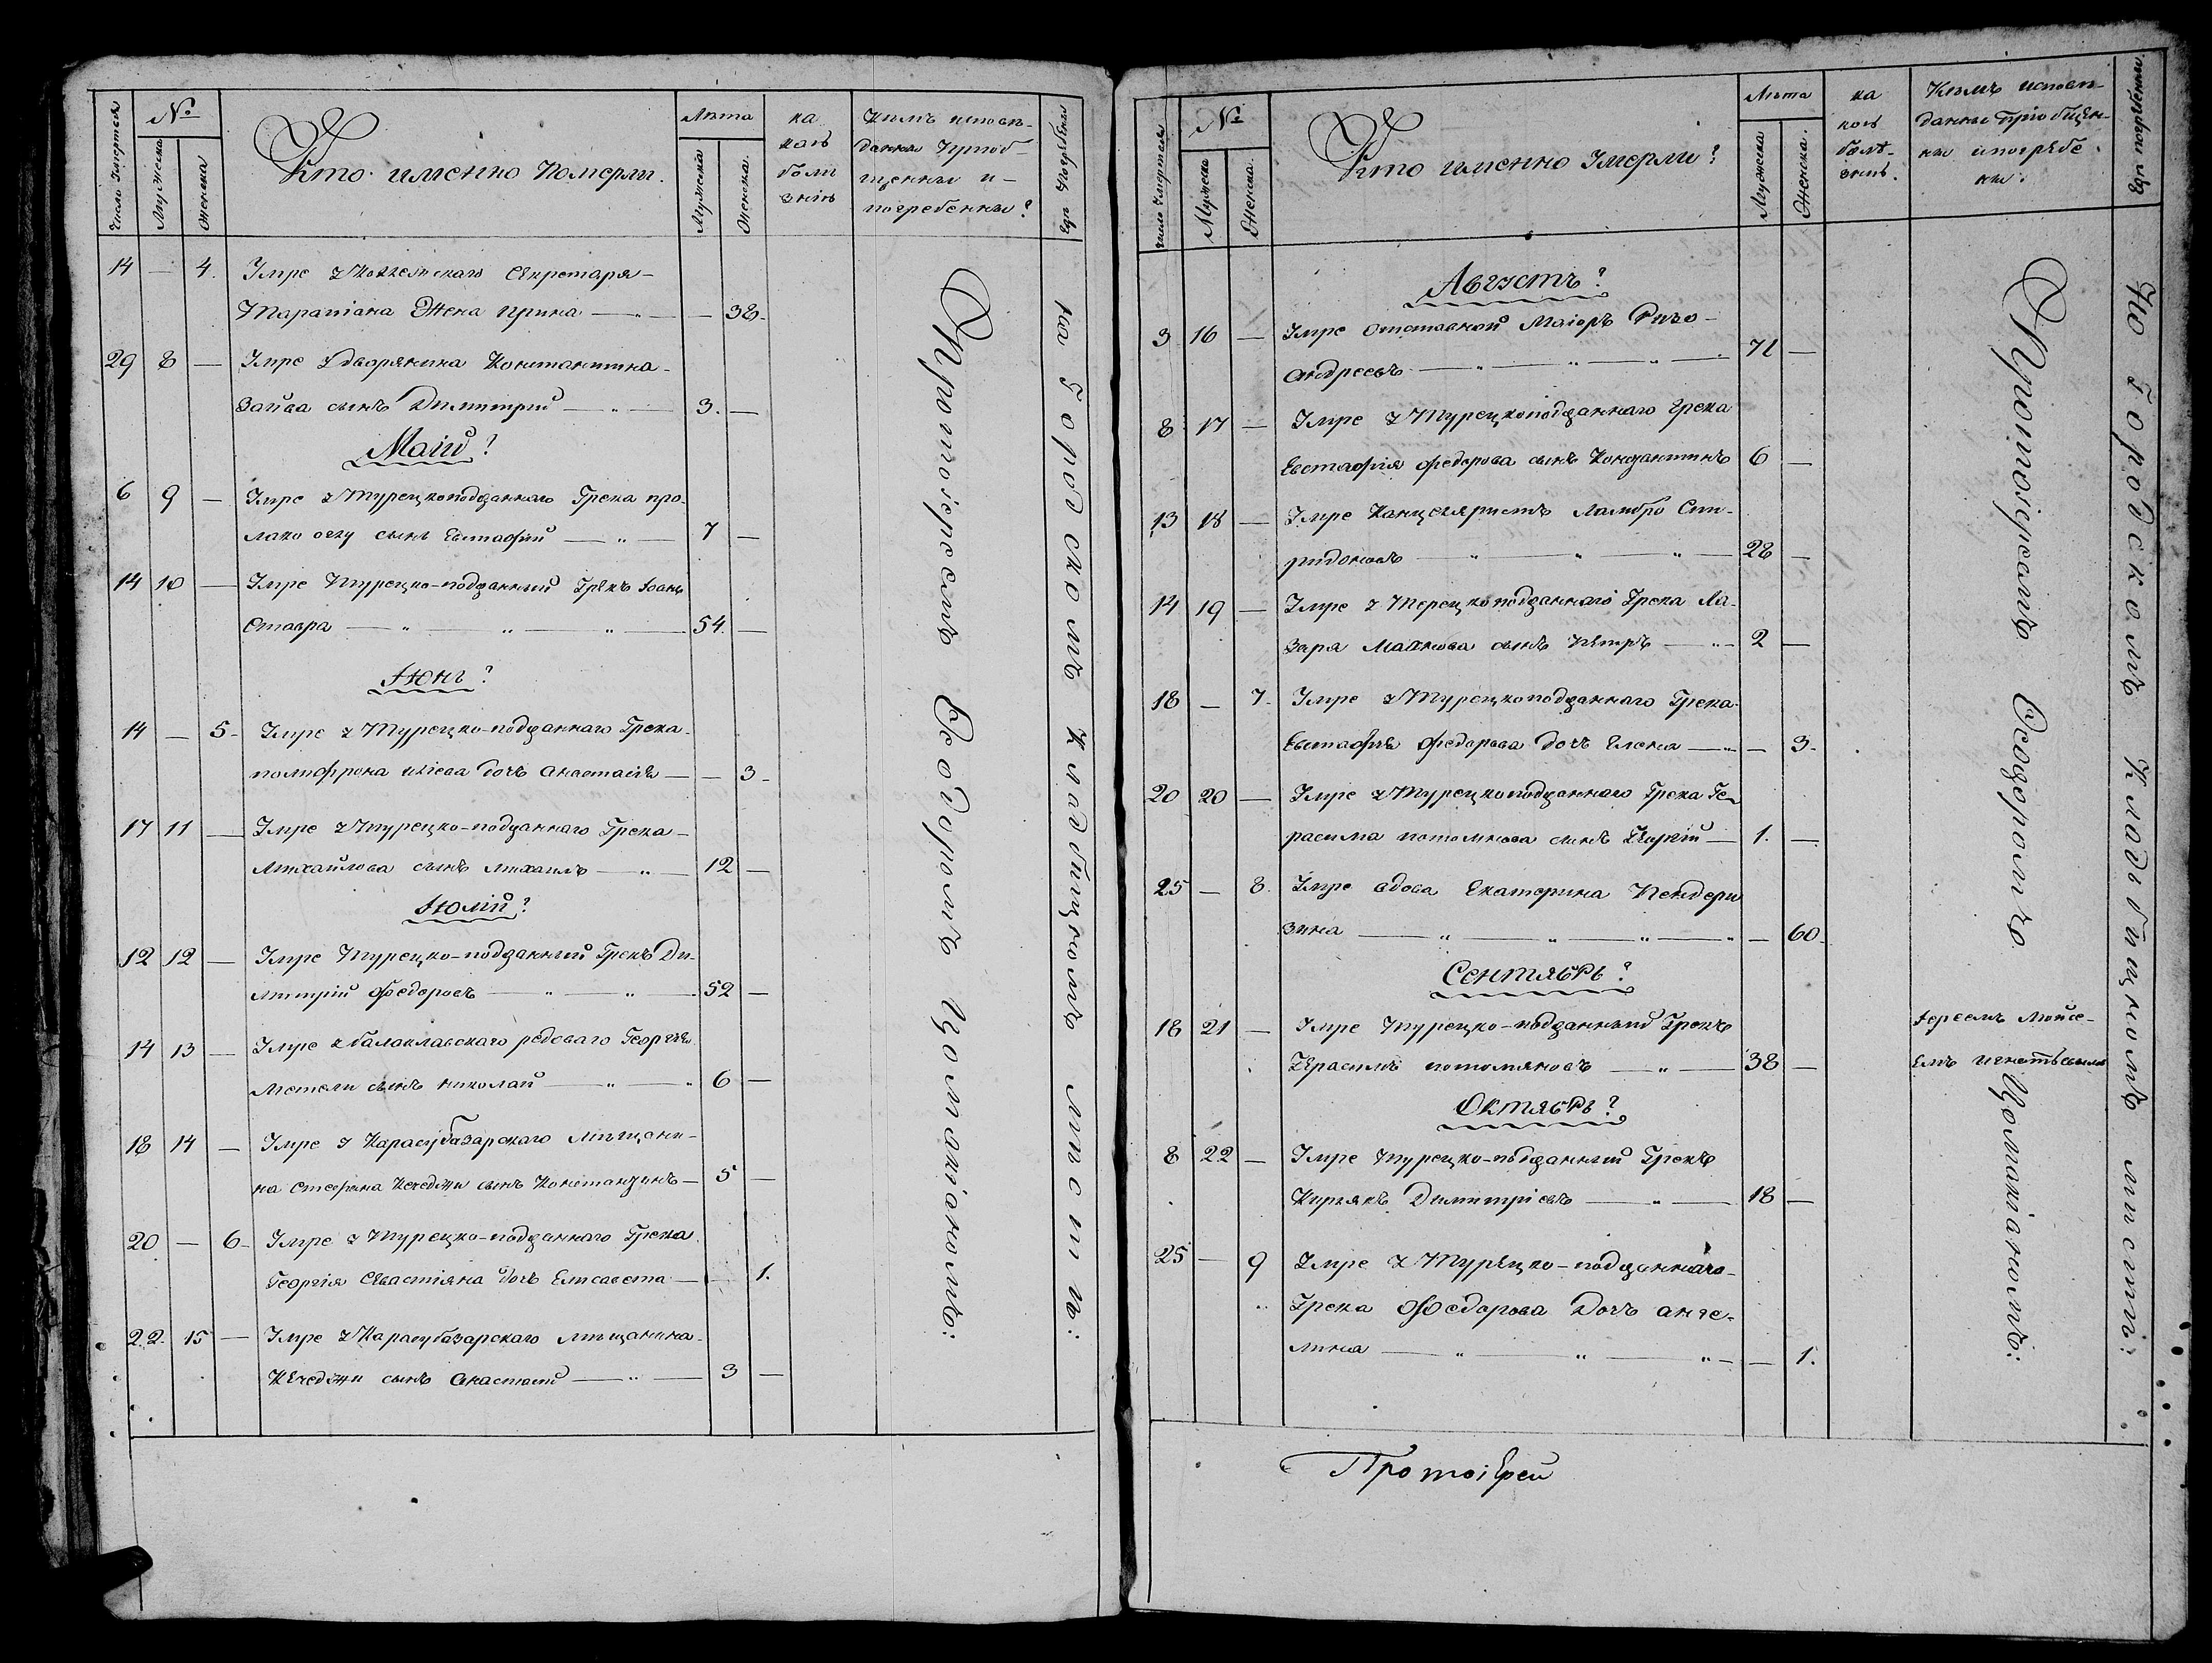 Число Умертвія
№
Мужеска
Женска
Кто именно Померли.
Лѣта
Мужеска
Женска
ка
кой
боли
знін
Кѣмъ исповѣ-
данны Приоб-
щенны и-
погребенны?
Гдѣ Погребены
14 — 4. Умре у Коллежскаго Секретаря —
Тарапіана Жена Ирина — „ — — 38.
29 8 — Умре у дворянина Константина —
Зайва сынъ Димитрий — „ — 3. —
Маій?
6 9 — Умре у Турецкоподданнаго Грека про-
лако оглу сынъ Евстафій — „ — 7 —
14 10 — Умре Турецко-подданный Грекъ Іоанъ
Ставра — „ — „ — „ — 54. —
Іюнь?
14 — 5. Умре у Турецко-подданнаго Грека
полифрона иліева дочь Анастасія — — 3.
17 11 — Умре у Турецко-подданнаго Грека —
Михайлова сынъ Михаилъ — „ — 12 —
Іюлій?
12 12 — Умре Турецко-подданный Грекъ Ди-
митрій Федоровъ — „ — „ — 52 —
14 13 — Умре у балаклавскаго редоваго Георгія
Метели сынъ николай — „ — „ 6 —
18 14 — Умре у Карасубазарскаго мѣщани-
на Стефана Кечеджи сынъ Константинъ — 5 —
20 — 6. Умре у Турецко-подданнаго Грека
Георгія Севастіяна дочь Елисавета — — 1.
22. 15 — Умре у Карасубазарскаго мѣщанина
Кечеджи сынъ Анастасій — „ — 3 —
Протоіереемъ Ѳеодоромъ Цоманіаномъ:
на Городскомъ Кладбищномъ мѣсти ѣ:
Число Умертвія
№
Мужеска
Женска
Кто именно Умерли?
Лѣта
Мужеска
Женска.
ка
кой
болѣ-
знів.
Кѣмъ исповѣ-
данны Пріобщен-
ны ипогребе
ны.
Гдѣ погребены
Августъ?
3 16 — Умре Отставной Маіоръ Ризо —
Андреевъ — „ — „ — „ 71 —
8 17 — Умре у Турецкоподданнаго Грека
Евстафія Федорова сынъ Константинъ 6 —
13 18 — Умре Канцеляристъ Ламбро Спи-
ридоновъ — „ — „ — „ — 28 —
14 19 — Умре у Терецкоподданнаго Грека Ла-
заря Манкова сынъ Петръ — „ — 2 —
18 — 7. Умре у Турецкоподданнаго Грека
Евстафія Федорова дочь Елена — „ — 3.
20 20 — Умре у Турецкоподданнаго Грека Ге-
расима потомянова сынъ Георгій — 1. —
25 — 8. Умре вдова Екатерина Пендери
зина — „ — „ — „ — „ — 60.
Сентябрь?
18 21 — Умре Турецко-подданный Грекъ
Герасимъ потомяновъ — „ — 38 —
Іереемъ Мойсе-
емъ Игнатьевымъ
Октябрь?
8 22 — Умре Турецко-подданный Грекъ
Кирьякъ Димитріевъ — „ — 18 —
25 — 9 Умре у Турецко-подданнаго —
Грека Федорова дочь анге-
лина — „ — „ — „ — — 1.
Протоіереемъ Ѳеодоромъ Цоманіаномъ:
На Городскомъ Кладбищномъ мисти:
Протоіерей